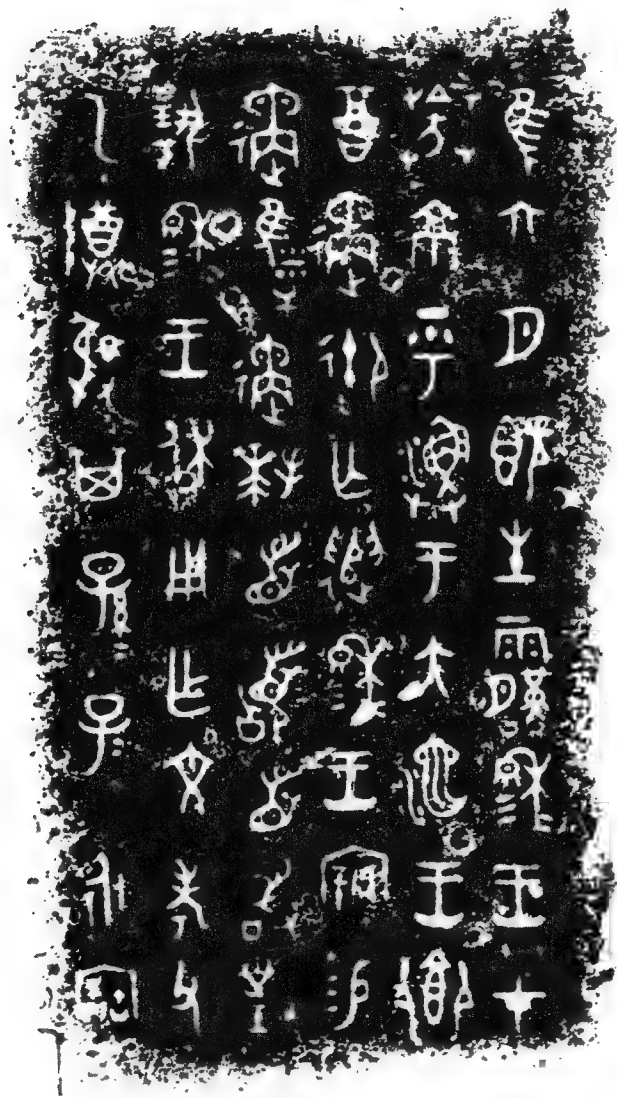 隹六月既生霸穆=王才
葊京乎漁于大池王鄉
酉遹御亡遣穆=王寴易
遹遹拜首䭫首敢對
揚穆=王休用乍文考父
乙尊彝其孫=子=永寶